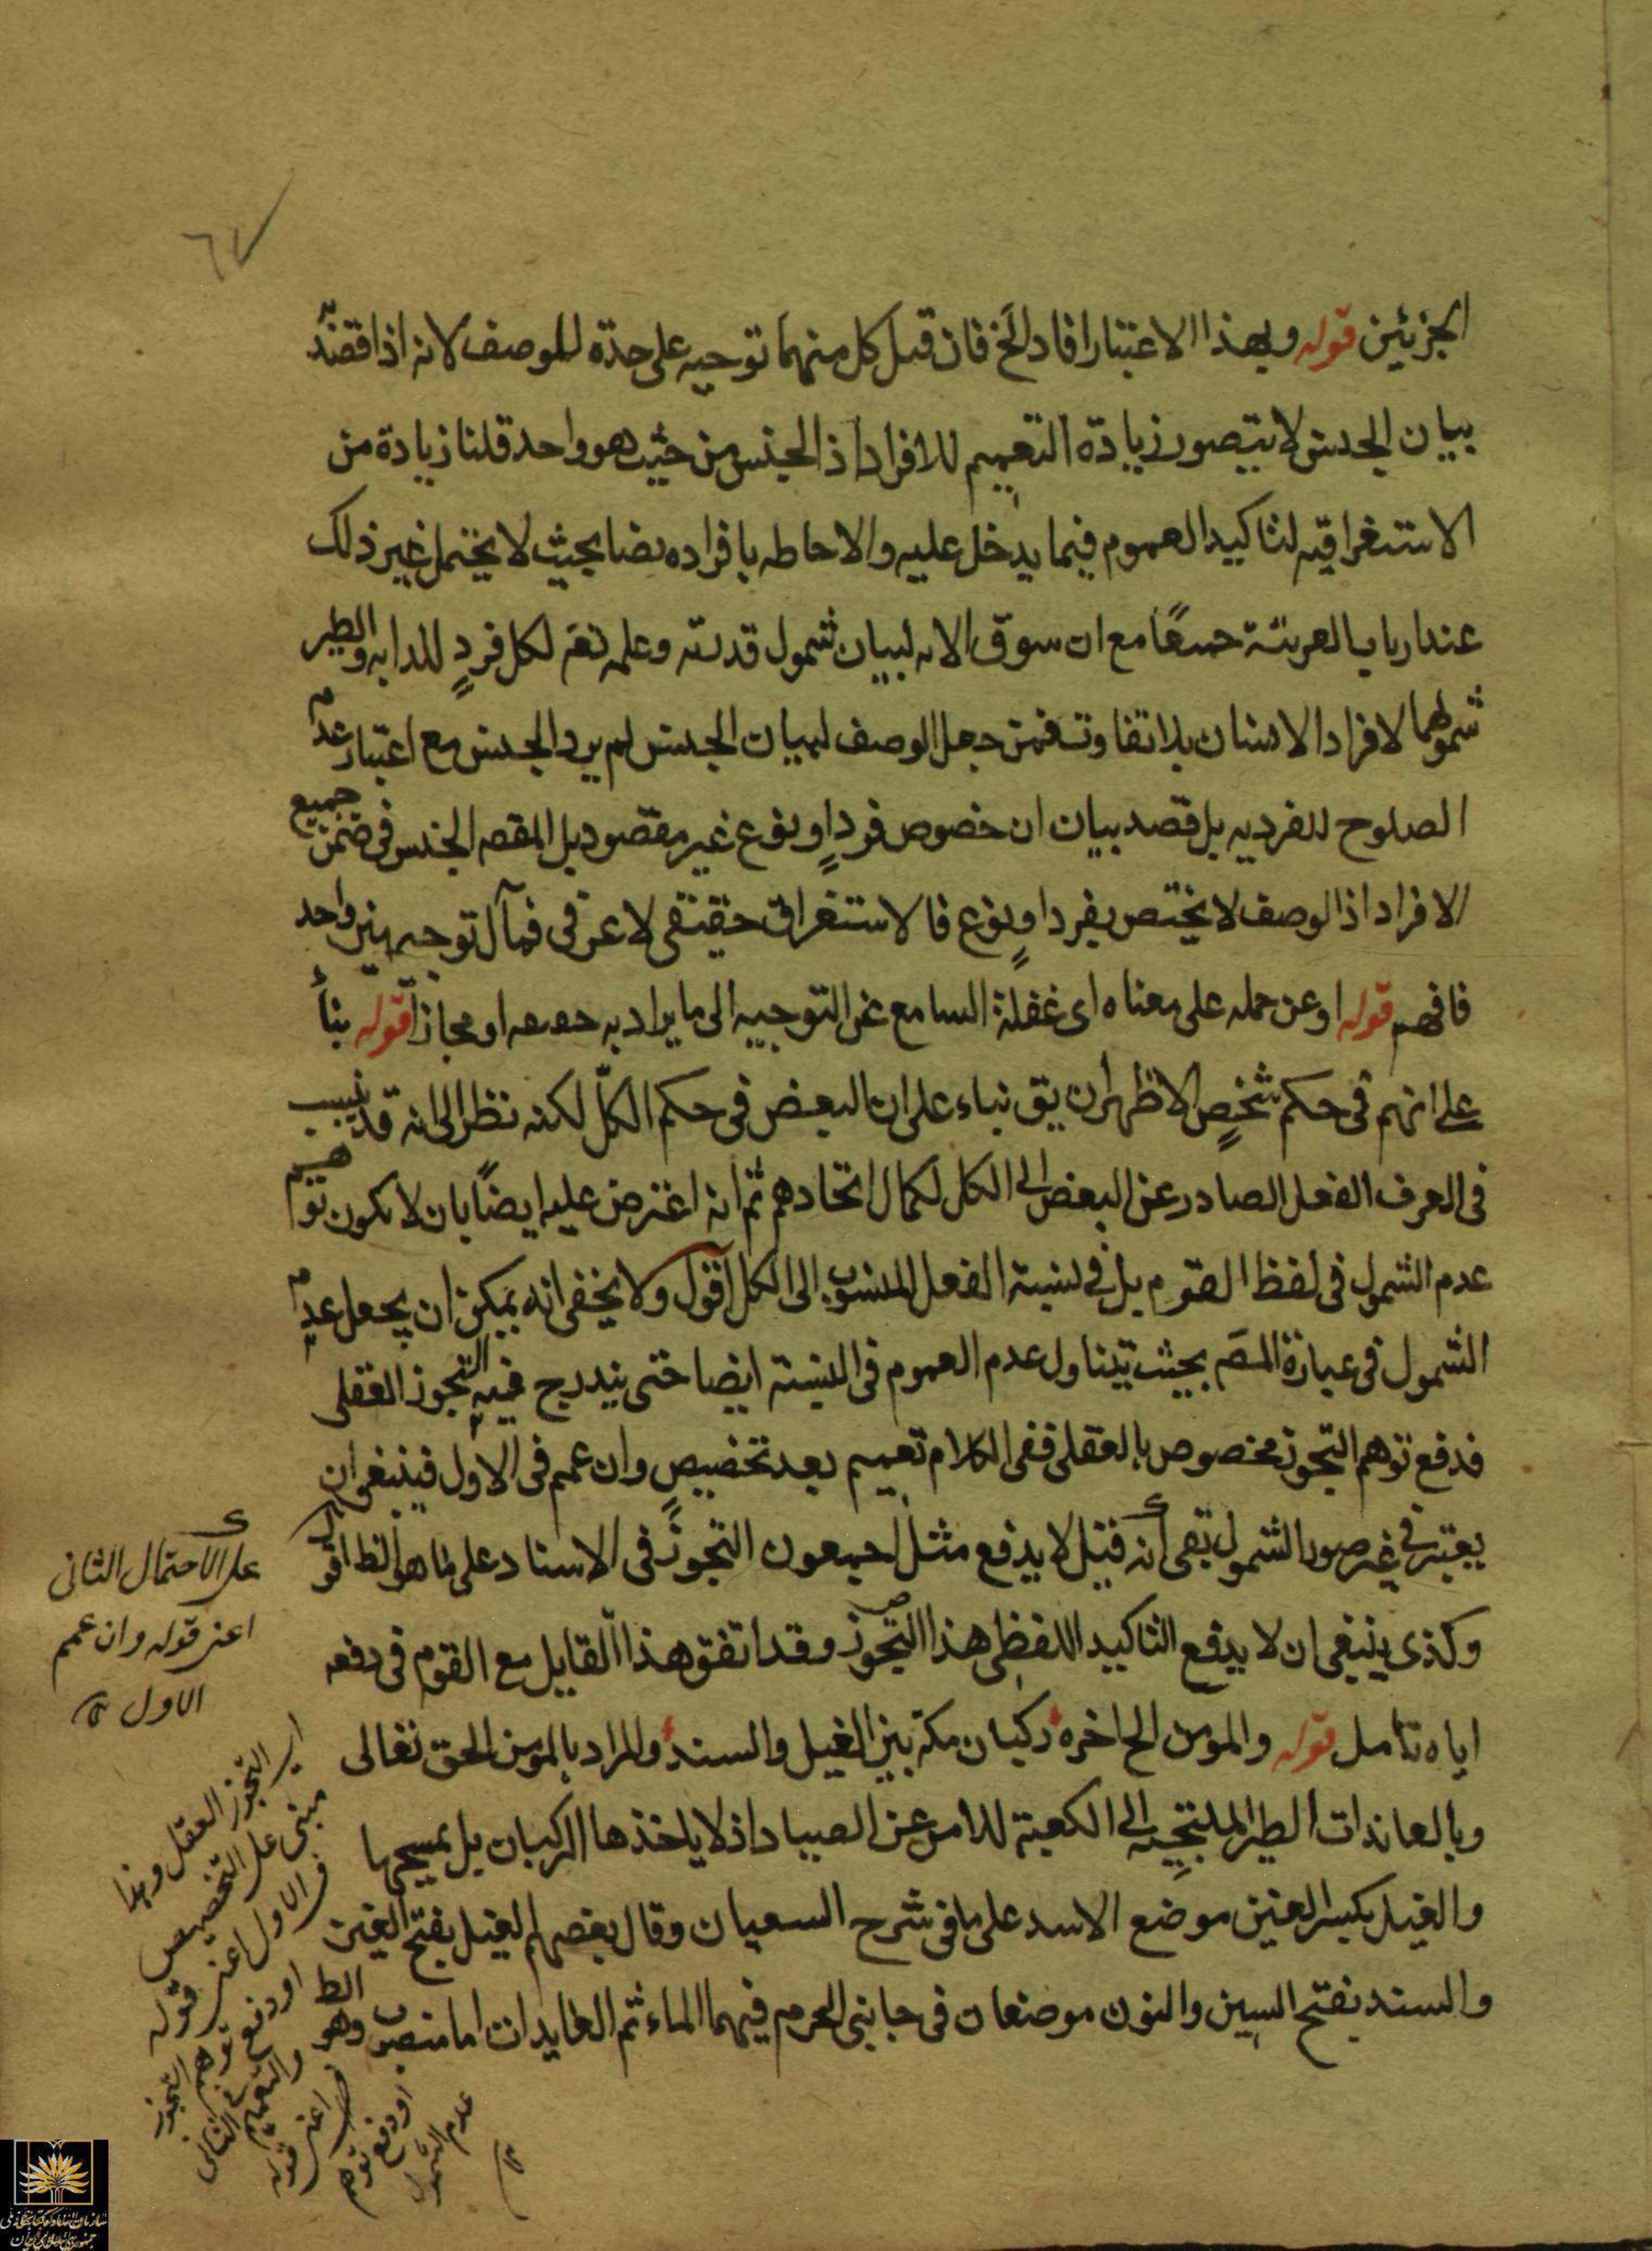 ٦٧
الجزئين قوله وبهذا الاعتبار افاد الخ فان قيل كل منهما توجيه على حدة للوصف لانه اذا قصد به
بيان الجنس لا يتصور زيادة التعميم للافراد اذ الجنس من حيث هو واحد قلنا زيادة من
الاستغراقيه لتاكيد العموم فيما يدخل عليه والاحاطه بافراده نصا بحيث لا يحتمل غير ذلك
عند ارباب العربية جميعًا مع ان سوق الايه لبيان شمول قدرته وعلمه تعم لكل فردٍ للدابه والطير
شمولهما لافراد الانسان بلا تفاوت فمن جعل الوصف لبيان الجنس لم يرد الجنس مع اعتبار عدم
الصلوح للفرديه بل قصد بيان ان خصوص فردٍ او نوع غير مقصود بل المقصد الجنس في ضمن جميع
الافراد اذ الوصف لا يختص بفرد او نوع فالاستغراق حقيقى لا عرفى فمآل توجيهين واحد
فافهم قوله او عن حمله على معناه اى غفلة السامع عن التوجيه الى ما يراد به حقيقه او مجازا قوله بناءً
على انهم في حكم شخصٍ الاظهر ان يق بناء على ان البعض في حكم الكلّ لكنه نظر الى انه قد ينسب
في العرف الفعل الصادر عن البعض الى الكل لكمال اتحادهم ثم انه اعترض عليه ايضًا بان لا يكون توهم
عدم الشمول في لفظ القوم بل في نسبة الفعل المنسوب الى الكل اقول ولا يخفى انه يمكن ان يجعل عدم
الشمول في عبارة المصَ بحيث يتناول عدم العموم في النسبة ايضا حتى يندرج فيه التجوز العقلى
فدفع توهم التجوز مخصوص بالعقلى ففى الكلام تعميم بعد تخصيص وان عمم في الاول فينبغى ان
يعتبر في غير صور الشمول بقى انه قيل لا يدفع مثل اجمعون التجوز في الاسناد على ما هو الظ اقول
وكذى ينبغى ان لا يدفع التاكيد اللفظى هذا التجوز وقد اتفق هذا القايل مع القوم في دفعه
اياه تامل قوله والمومن الخ اخره ركبان مكة بين الغيل والسند والمراد بالمومن الحق تعالى
وبالعائذات الطير الملتجيه الى الكعبة للامن عن الصياد اذ لا ياخذها الركبان بل يمسحها
والغيل بكسر الغين موضع الاسد على ما في شرح السعيان وقال بعضهم الغيل بفتح الغين
والسند بفتح السين والنون موضعان في جانبى الحرم فيهما الماء ثم العايدات اما منصوب وهو الظ
على الاحتمال الثانى
اعنى قوله وان عمم
الاول ١٢
اى التجوز العقلى وهذا
مبنى على التخصيص
في الاول اعنى قوله
او دفع توهم التجوز
والتعميم في الثانى
اعنى قوله
او دفع توهم
عدم الشمول
١٢